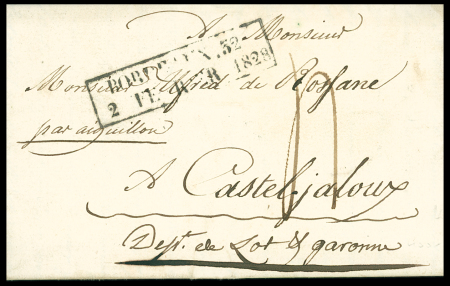 A Monsieur
BORDEAUX . 32
2 FEVRIER 1828
Monsieur Alfred de Rossane
par aiguillon
A Casteljaloux
Dept. de Lot & garonne